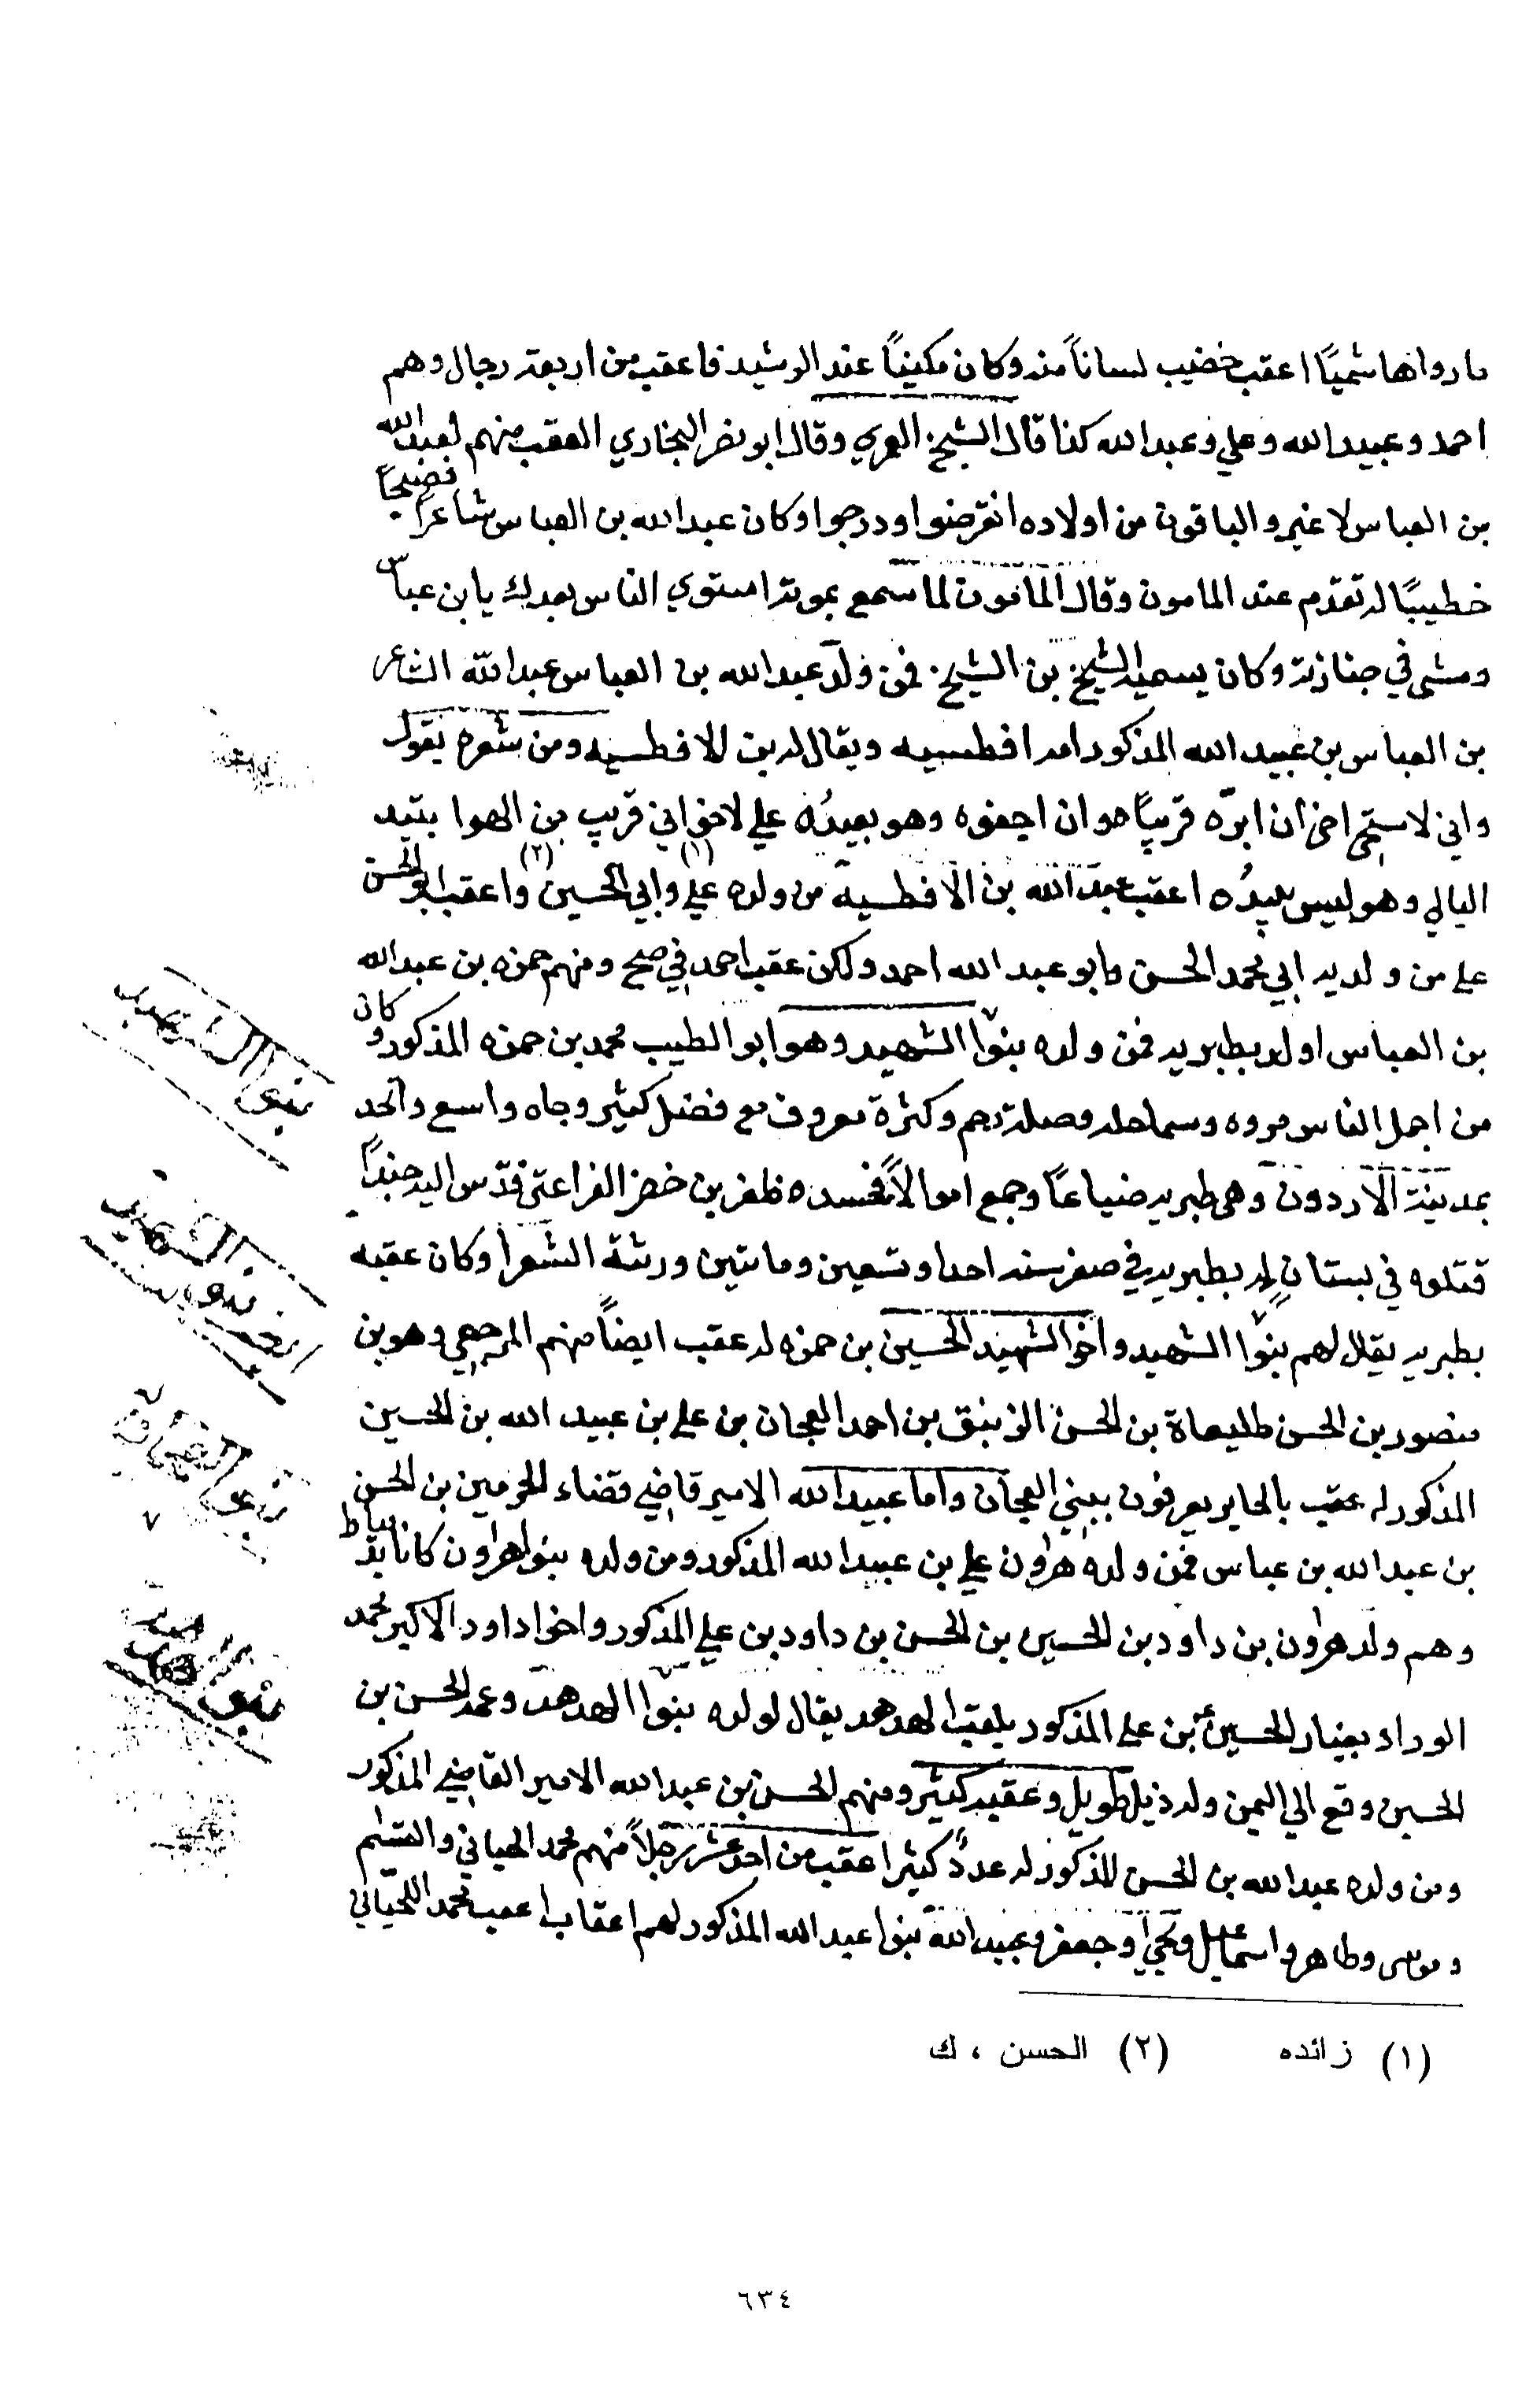 ما رواها شميًا اعقب خضيب لسانًا منه وكان مكينًا عند الرشيد فاعقب من اربعة رجال وهم
احمد وعبيد الله وعلي وعبد الله كذا قال الشيخ العمري وقال ابو نصر البخاري العقب منهم لعبد الله
بن العباس لا غير والباقون من اولاده انقرضوا ودرجوا وكان عبد الله بن العباس شاعرًا فصيحًا
خطيبًا له تقدّم عند المامون وقال المامون لما سمع بموته استوي الناس بعدك يا بن عباس
ومشى في جنازته وكان يسميه الشيخ بن الشيخ فمن ولد عبد الله بن العباس عبد الله الشاعر
بن العباس بن عبيد الله المذكور امه افطسيه ويقال له بن الافطسيه ومن شعره يقول
واني لاستحي اخي ان ابرّه قريبًا هو ان اجفوه وهو بعيدُه علي لاخواني قريب من الهوا بتيد
اليالي وهو ليس يبيدُه اعقب عبد الله بن الافطسية من ولده علي (١) وابي الحسين (٢) واعقب ابو الحسن
علي من ولديه ابي محمد الحسن وابو عبد الله احمد ولكن عقب احمد في صح ومنهم حمزه بن عبد الله
بن العباس اولد بطبريه فمن ولده بنوا الشهيد وهو ابو الطيب محمد بن حمزه المذكور وكان
من اجمل الناس مروه وسماحه وصلة رحم وكثرة معروف مع فضل كثير وجاه واسع واتخد
بمدينة الاردون وهي طبريه ضياعًا وجمع اموالًا فحسده ظفر بن خضر الفراعتى فدّس اليه جندًا
قتلوه في بستان له بطبريه في صفر سنه احدا وتسعين وماتين ورثة الشعرا وكان عقبه
بطبريه يقال لهم بنوا الشهيد واخو الشهيد الحسين بن حمزه له عقب ايضًا منهم المرجعي وهو بن
منصور بن الحسن طليعاة بن الحسن الزنبق بن احمد العجان بن علي بن عبيد الله بن الحسين
المذكور له عقب بالحاير يعرفون ببني العجان واما عبيد الله الامير قاضي قضاء الحرمين بن الحسن
بن عبد الله بن عباس فمن ولده هرون علي بن عبيد الله المذكور ومن ولده بنوا هرون كانا بدمياط
وهم ولد هرون بن داود بن الحسين بن الحسن بن داود بن علي المذكور واخوا داود الاكبر محمد
الوراد بعنيار الحسين بن علي المذكور يلقب الهدهد يقال لولده بنوا الهدهد وعمه الحسن بن
الحسين وقع الي اليمن وله ذيل طويل وعقبه كثير ومنهم الحسن بن عبد الله الامير القاضي المذكور
ومن ولده عبد الله بن الحسن المذكور له عددٌ كثير اعقب من احد عشر رجلًا منهم محمد اللحياني والقسم
وموسى وطاهر واسماعيل ويحيي وجعفر وعبيد الله بنوا عبد الله المذكور لهم اعقاب اعقب محمد اللحيّاني
بنوا الشهيد
بنوا العجان
بنوا الهدهد
(١) زائده (٢) الحسن ، ك
٦٣٤